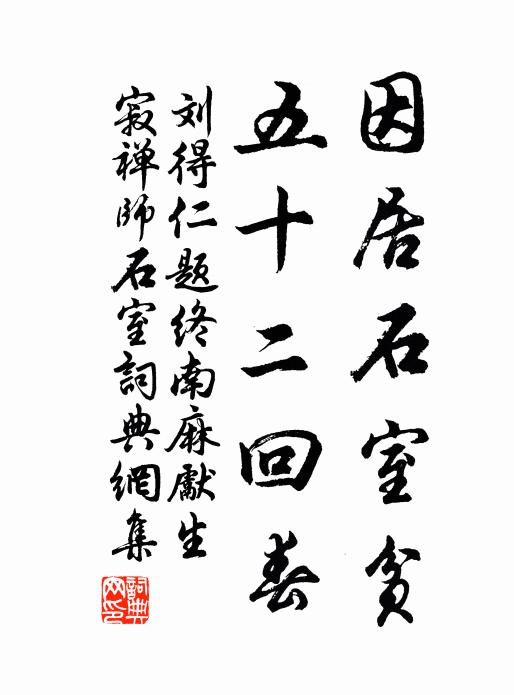 因居石室贫
五十二回春
刘得仁题终南麻献生
寂禅师石室詞典網集
詞典
网印